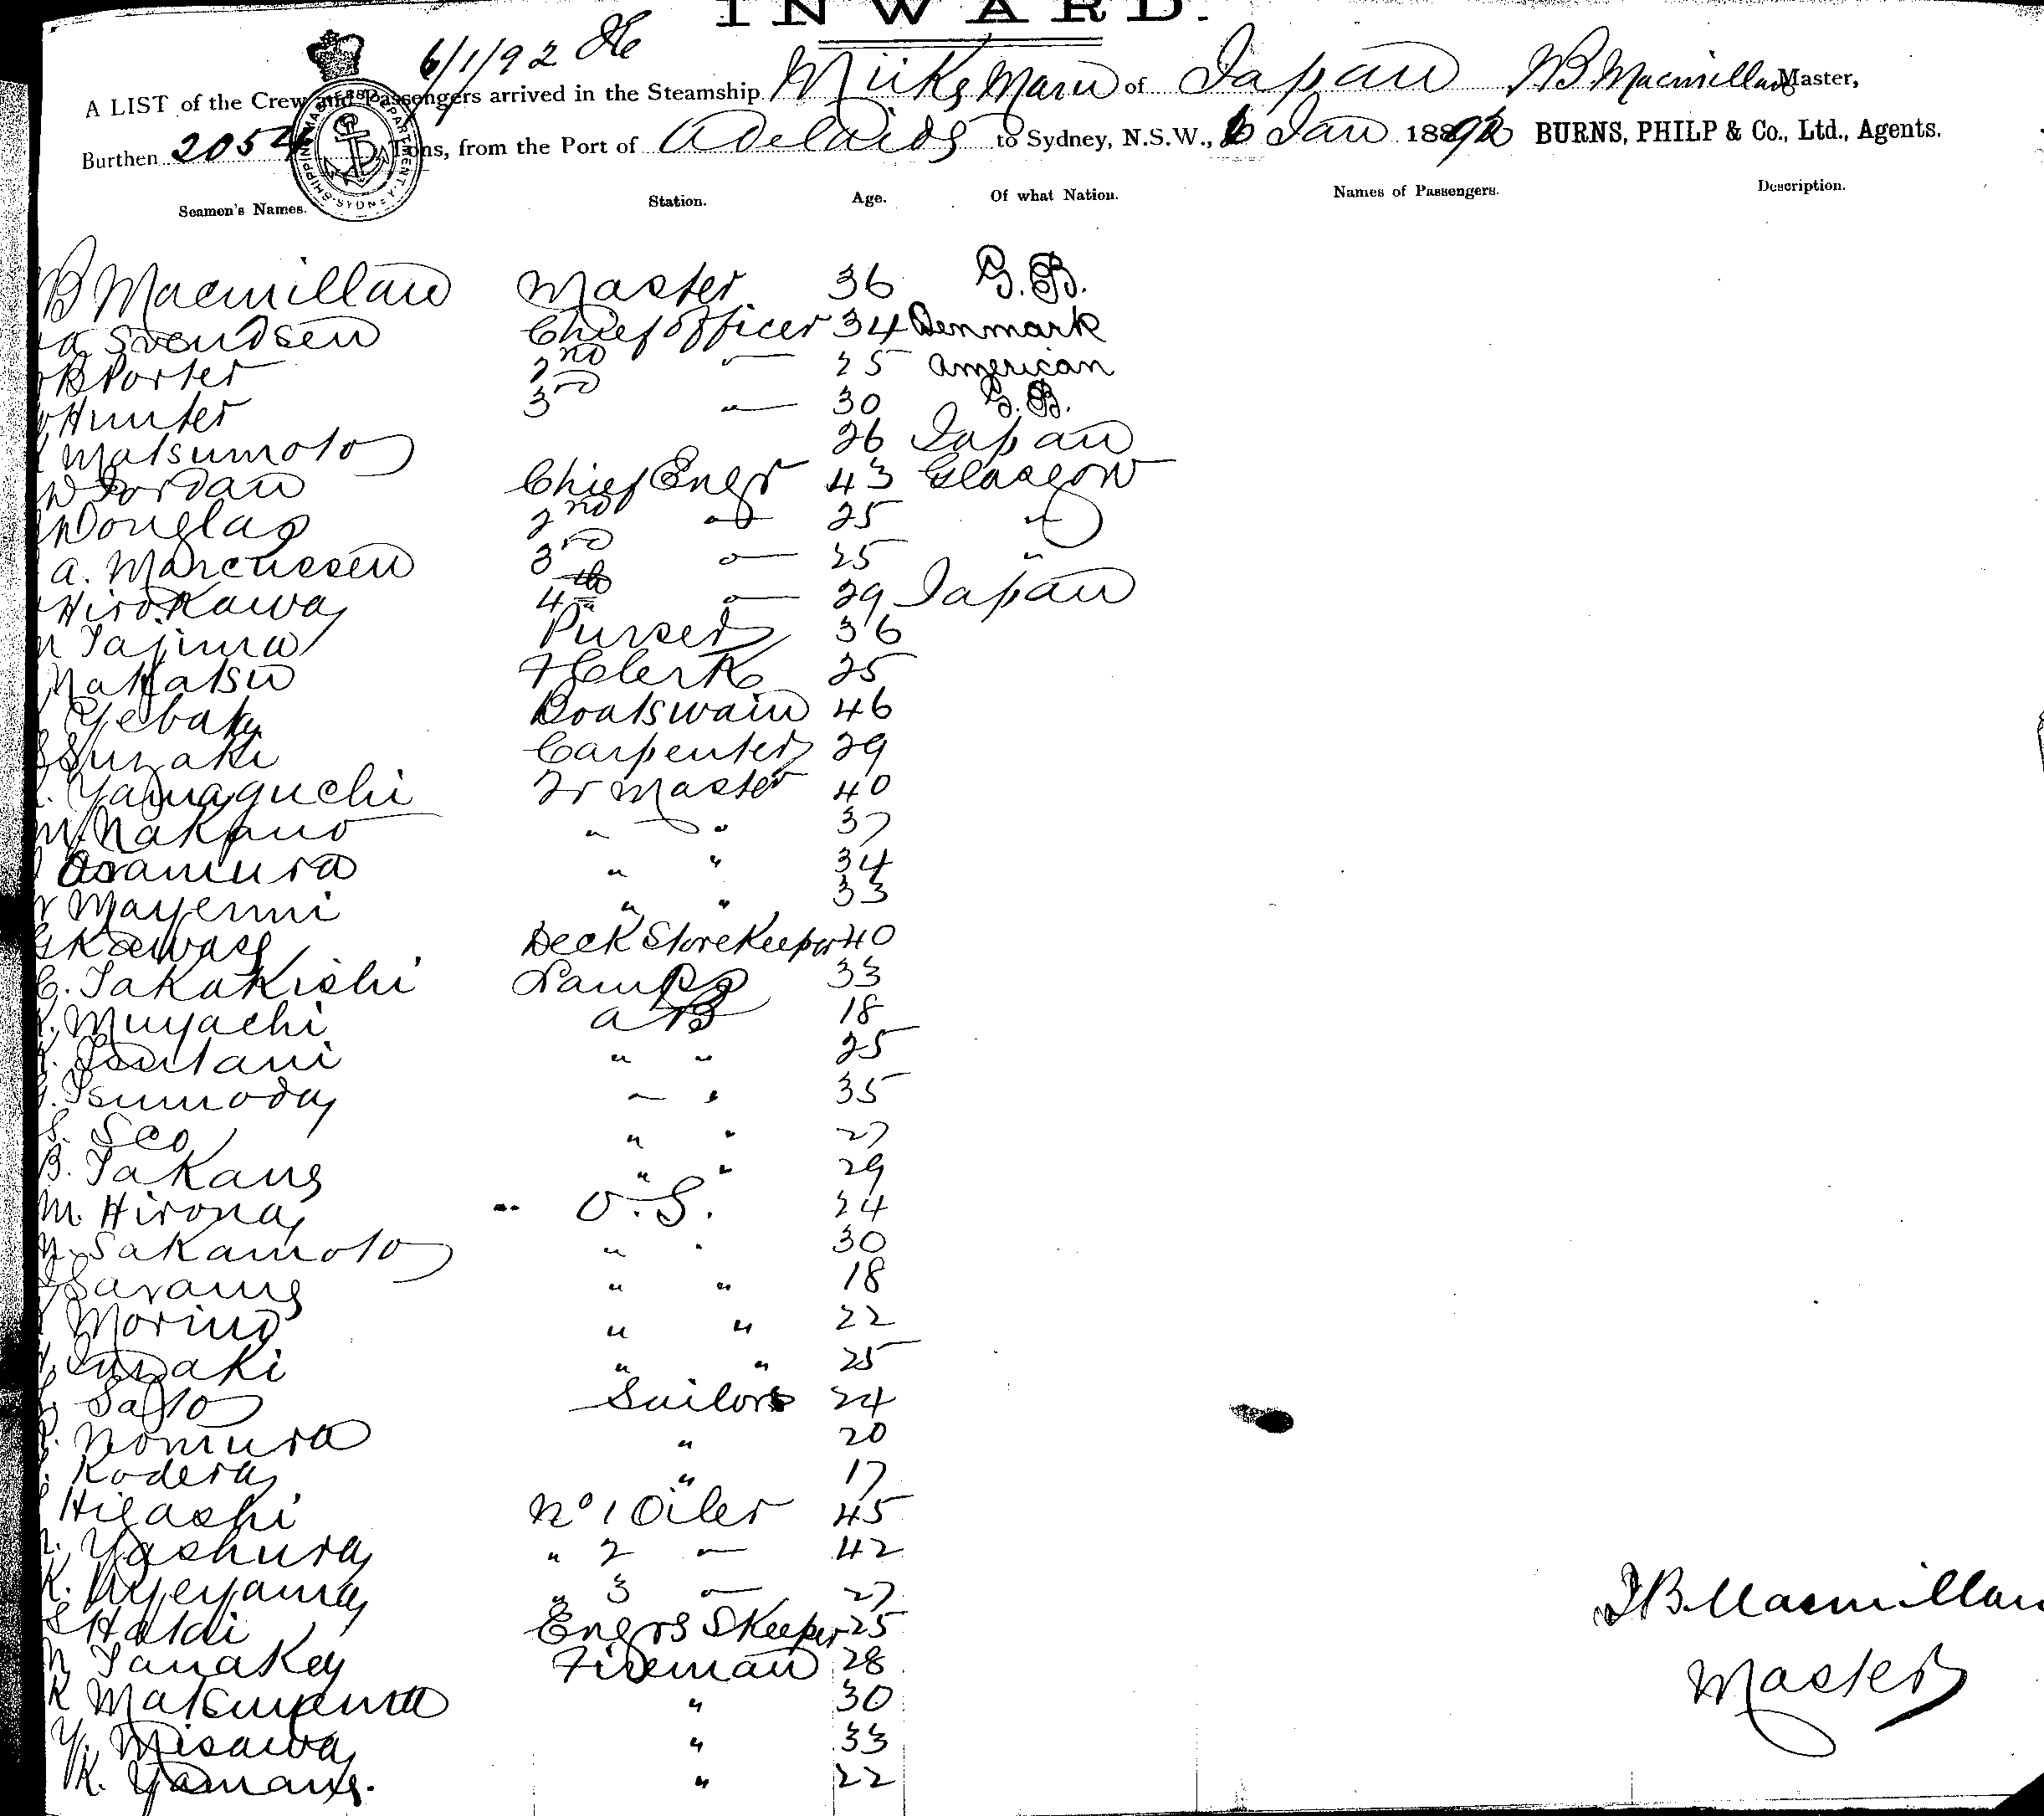 INWARD.
6/1/92
A LIST of the Crew and Passengers arrived in the Steamship Miike Maru of Japan B Macmillan Master,
Burthen 2054 Tons, from the Port of Adelaide to Sydney, N.S.W., 6 Jan 1892 BURNS, PHILP & Co., Ltd., Agents.
SHIPPING MASTERS DEPARTMENT SYDNEY
Seamen's Names. Station. Age. Of what Nation. Names of Passengers. Description.
B Macmillan Master 36 G.B.
Svendsen Chief Officer 34 Denmark
B Porter 2nd " 25 American
Hunter 3rd " 30 G.B.
Matsumoto 26 Japan
Jordan Chief Engr 43 Glasgow
Douglas 2nd " 25 "
A. Marcussen 3rd " 25 "
Hirokawa 4th " 29 Japan
Tajima Purser 36
Nakatsu Clerk 25
Yebata Boatswain 46
Suzaki Carpenter 29
Yamaguchi Qr Master 40
M. Nakano " " 37
Osamura " " 34
Mayenni " " 33
Kawase Deck StoreKeeper 40
C. Takakishi Lamps 33
Muyachi A B 18
Tsutani " " 25
Tsunoda " " 35
S. Seo " " 27
B. Takane " " 29
M. Hirona O.S. 24
N. Sakamoto " " 30
" " 18
Morino " " 22
" " 25
Saito Sailors 24
Nomura " 20
Kodera " 17
Higashi No 1 Oiler 45
Yashura " 2 " 42
K. Uyeyama " 3 " 27
S Hatai Engrs SKeeper 25
N Tanakey Fireman 28
K Matsuyama " 30
Y. Misawa " 33
K. Yamane. " 22
J B Macmillan
Master